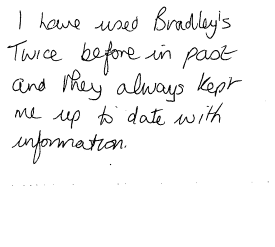 I have used Bradley's
Twice before in past
and they always kept
me up to date with
information.